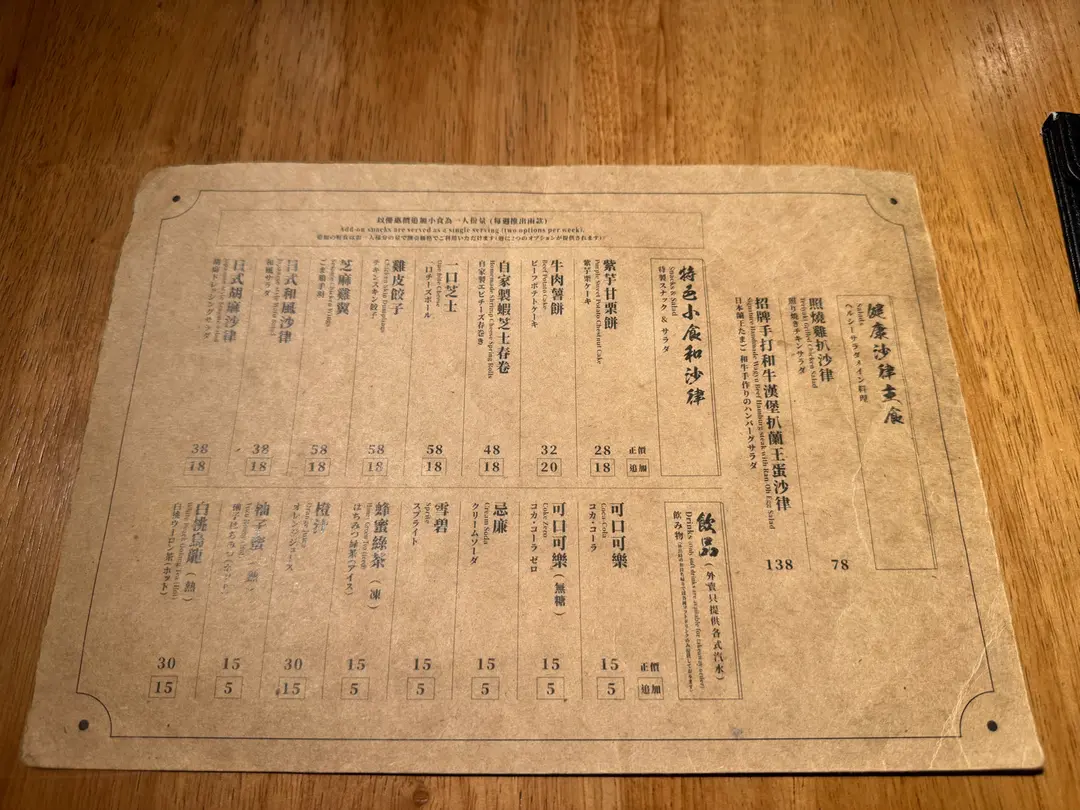 健康沙律主食
Salads
ヘルシーサラダメイン料理
照燒雞扒沙律
Teriyaki Grilled Chicken Salad
照り焼きチキンサラダ
78
招牌手打和牛漢堡扒蘭王蛋沙律
Signature Handmade Wagyu Beef Hamburg steak with Ran-Oh Egg Salad
日本蘭王たまご 和牛手作りのハンバーグサラダ
138
特色小食和沙律
Snacks & Salad
特製スナック & サラダ
正價
追加
紫芋甘栗餅
Purple Sweet Potato Chestnut Cake
紫芋栗ケーキ
28
18
牛肉薯餅
Beef Potato Cake
ビーフポテトケーキ
32
20
自家製蝦芝士春卷
Homemade Shrimp Cheese Spring Rolls
自家製エビチーズ春巻き
48
18
一口芝士
One Bite Cheese
一口チーズボール
58
18
雞皮餃子
Chicken Skin Dumplings
チキンスキン餃子
58
18
芝麻雞翼
Sesame Chicken Wings
58
18
日式和風沙律
和風サラダ
38
18
日式胡麻沙律
胡麻ドレッシングサラダ
38
18
以優惠價追加小食為一人份量 (每週推出兩款)
Add-on snacks are served as a single serving (two options per week).
飲品 (外賣只提供各式汽水)
Drinks (only soft drinks are available for takeaway orders)
飲み物
正價
追加
可口可樂
Coca-Cola
コカ・コーラ
15
5
可口可樂 (無糖)
Coke Zero
コカ・コーラ ゼロ
15
5
忌廉
Cream Soda
クリームソーダ
15
5
雪碧
Sprite
スプライト
15
5
蜂蜜綠茶 (凍)
Honey Green Tea (Iced)
はちみつ緑茶 (アイス)
15
5
橙汁
Orange Juice
オレンジジュース
30
15
柚子蜜 (熱)
15
5
白桃烏龍 (熱)
White Peach Oolong Tea (Hot)
白桃ウーロン茶 (ホット)
30
15